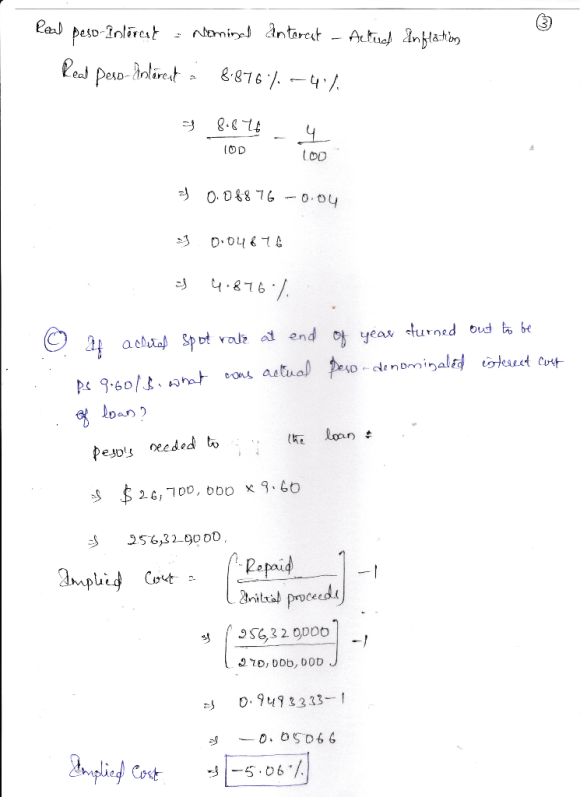 ③
Real peso-Interest = Nominal Interest - Actual Inflation
Real Peso-Interest = 8.876 % - 4 %
⇒ 8.876/100 - 4/100
⇒ 0.08876 - 0.04
⇒ 0.04876
⇒ 4.876 %
Ⓒ If actual spot rate at end of year turned out to be
Ps 9.60/$. what was actual Peso-denominated interest cost
of loan?
Peso's needed to the loan =
⇒ $ 26,700,000 × 9.60
⇒ 256,320,000.
Implied Cost = [Repaid / Initial proceeds] - 1
⇒ [256,320,000 / 270,000,000] - 1
⇒ 0.9493333 - 1
⇒ - 0.05066
Implied Cost ⇒ -5.06 %